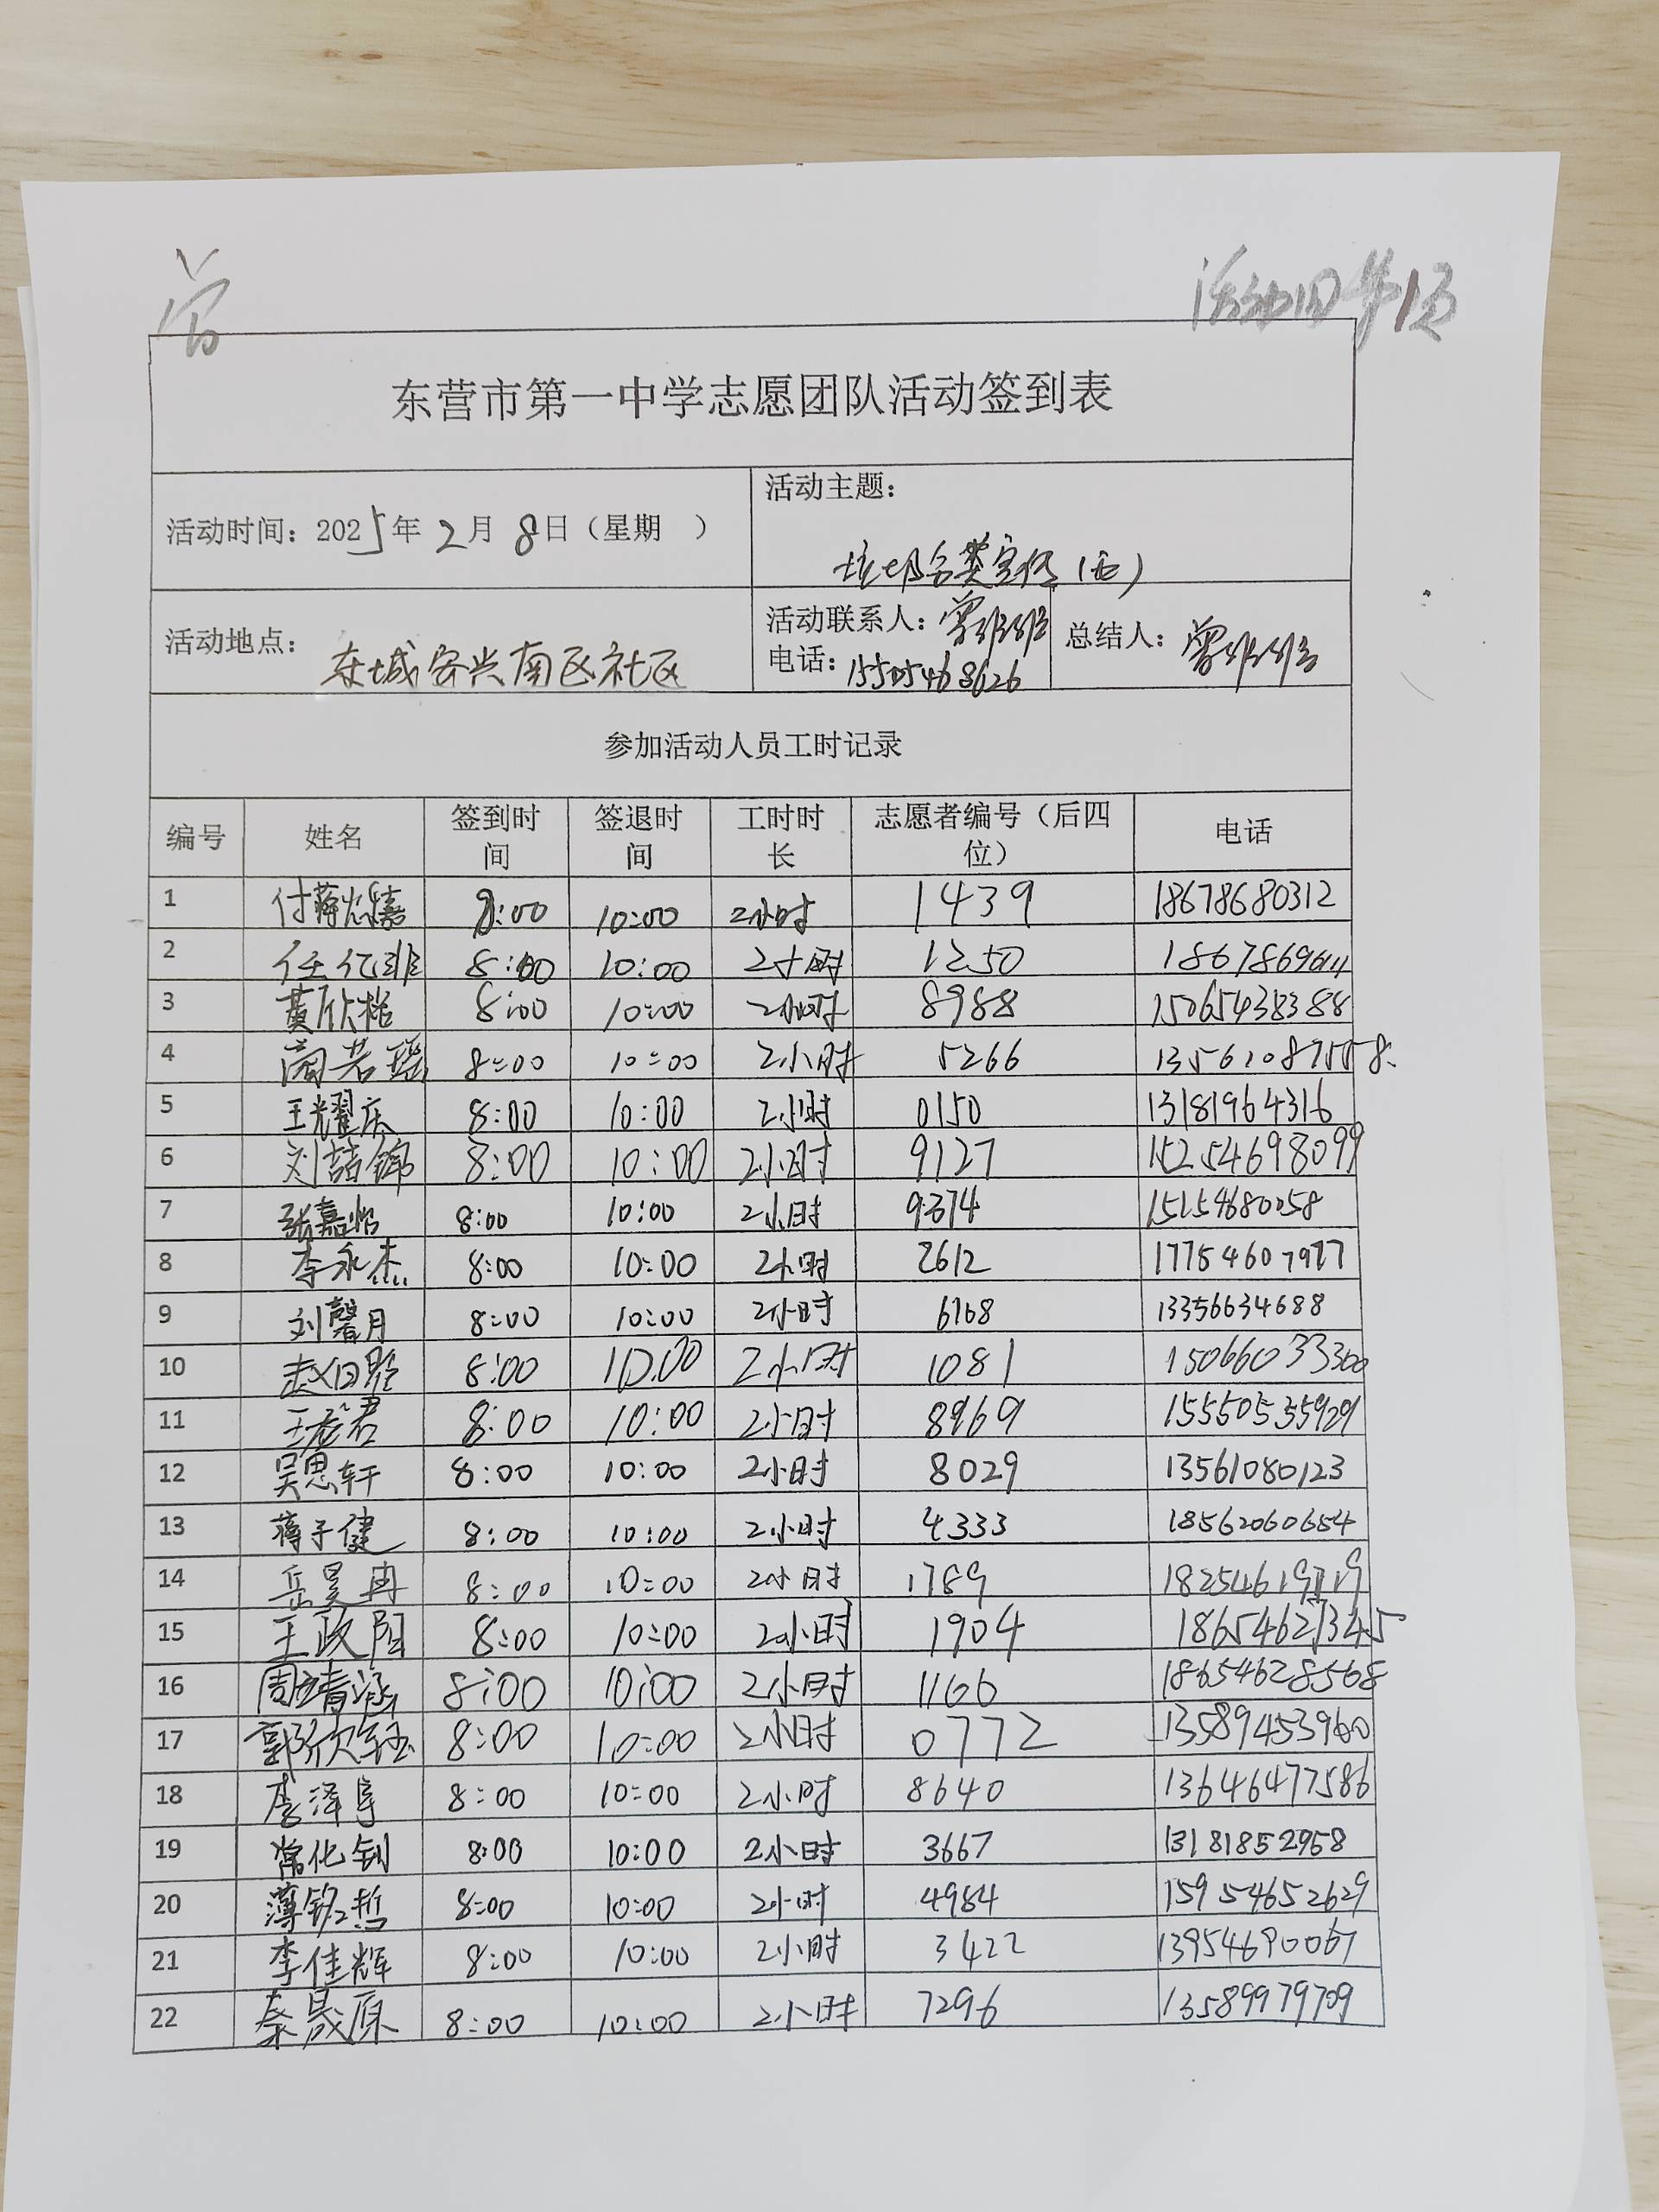 曾
活动四 第1页
东营市第一中学志愿团队活动签到表
活动时间：2025年 2月 8日（星期 ）
活动主题：
垃圾分类宣传（五）
活动地点：东城安兴南区社区
活动联系人：曾维维
电话：15505468626
总结人：曾维维
参加活动人员工时记录
编号 姓名 签到时间 签退时间 工时时长 志愿者编号（后四位） 电话
1 付蒋 8:00 10:00 2小时 1439 18678680312
2 任亿非 8:00 10:00 2小时 1250
3 黄欣 8:00 10:00 2小时 8988 15065438388
4 若瑶 8:00 10:00 2小时 5266 13561087558
5 王耀庆 8:00 10:00 2小时 0150 13181964316
6 刘喆锦 8:00 10:00 2小时 9127 15254698099
7 张嘉怡 8:00 10:00 2小时 9374 15154680058
8 李永杰 8:00 10:00 2小时 2612 17754607977
9 刘馨月 8:00 10:00 2小时 6168 13356634688
10 赵 8:00 10:00 2小时 1081 15066033300
11 王 君 8:00 10:00 2小时 8969 15550535929
12 吴思轩 8:00 10:00 2小时 8029 13561080123
13 蒋子健 8:00 10:00 2小时 4333 18562060654
14 岳昊冉 8:00 10:00 2小时 1789
15 王政阳 8:00 10:00 2小时 1904 18654627345
16 周靖涵 8:00 10:00 2小时 1166 18654628568
17 郭欣钰 8:00 10:00 2小时 0772 13589453960
18 李泽阜 8:00 10:00 2小时 8640 13646477586
19 常化钊 8:00 10:00 2小时 3667 13181852958
20 薄铭哲 8:00 10:00 2小时 4984 15954652629
21 李佳辉 8:00 10:00 2小时 3422 13954690067
22 秦晟原 8:00 10:00 2小时 7296 13589979709